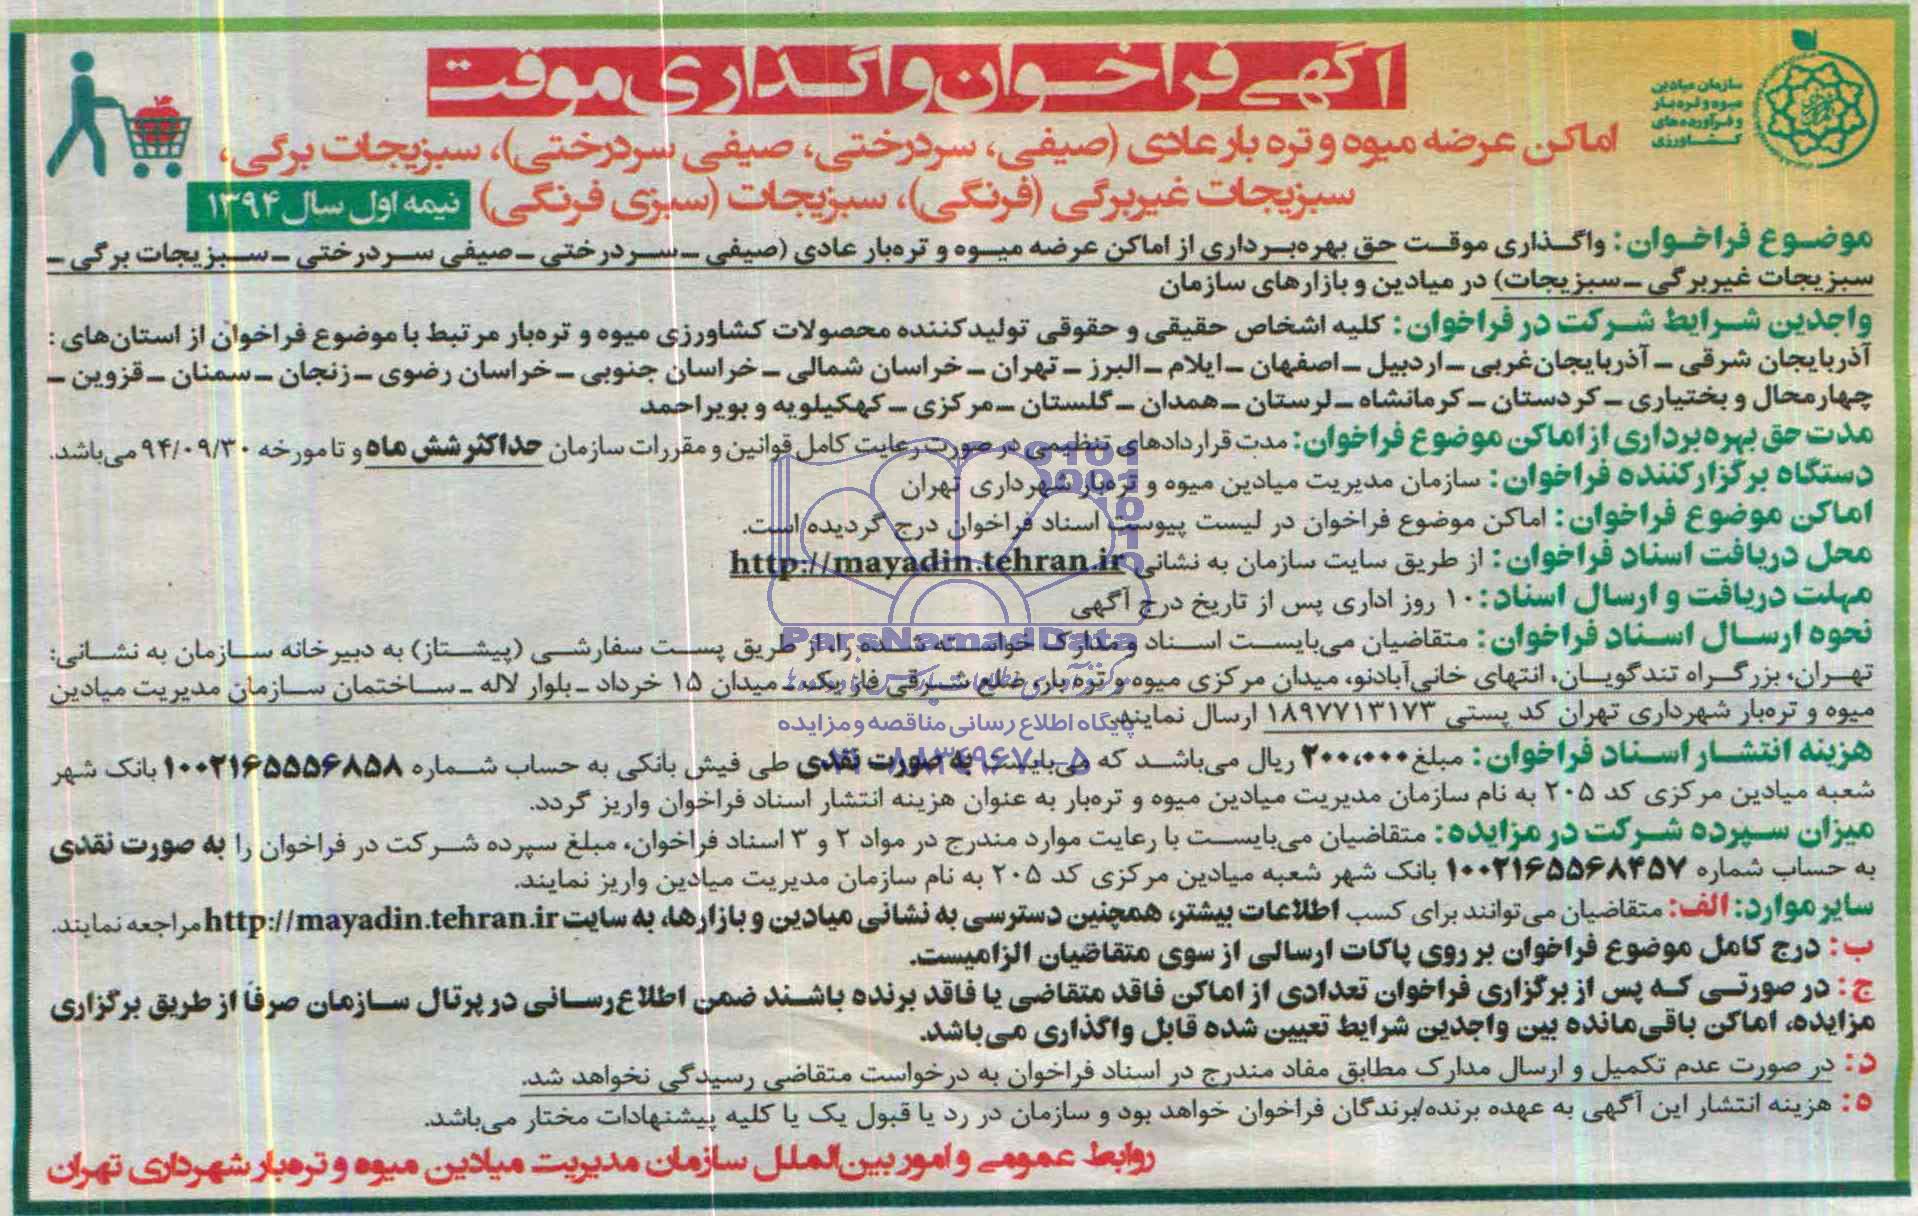 سازمان میادین
میوه و تره بار
و فرآورده‌های
کشاورزی
آگهی فراخوان واگذاری موقت
اماکن عرضه میوه و تره بار عادی (صیفی، سردرختی، صیفی سردرختی)، سبزیجات برگی،
سبزیجات غیربرگی (فرنگی)، سبزیجات (سبزی فرنگی) نیمه اول سال ۱۳۹۴
موضوع فراخوان: واگذاری موقت حق بهره‌برداری از اماکن عرضه میوه و تره‌بار عادی (صیفی ـ سردرختی ـ صیفی سردرختی ـ سبزیجات برگی ـ
سبزیجات غیربرگی ـ سبزیجات) در میادین و بازارهای سازمان
واجدین شرایط شرکت در فراخوان: کلیه اشخاص حقیقی و حقوقی تولیدکننده محصولات کشاورزی میوه و تره‌بار مرتبط با موضوع فراخوان از استان‌های :
آذربایجان شرقی ـ آذربایجان‌غربی ـ اردبیل ـ اصفهان ـ ایلام ـ البرز ـ تهران ـ خراسان شمالی ـ خراسان جنوبی ـ خراسان رضوی ـ زنجان ـ سمنان ـ قزوین ـ
چهارمحال و بختیاری ـ کردستان ـ کرمانشاه ـ لرستان ـ همدان ـ گلستان ـ مرکزی ـ کهکیلویه و بویراحمد
مدت حق بهره‌برداری از اماکن موضوع فراخوان: مدت قراردادهای تنظیمی در صورت رعایت کامل قوانین و مقررات سازمان حداکثر شش ماه و تا مورخه ۹۴/۰۹/۳۰ می‌باشد.
دستگاه برگزارکننده فراخوان: سازمان مدیریت میادین میوه و تره‌بار شهرداری تهران
اماکن موضوع فراخوان: اماکن موضوع فراخوان در لیست پیوست اسناد فراخوان درج گردیده است.
محل دریافت اسناد فراخوان: از طریق سایت سازمان به نشانی http://mayadin.tehran.ir
مهلت دریافت و ارسال اسناد: ۱۰ روز اداری پس از تاریخ درج آگهی
ParsNamadData
نحوه ارسال اسناد فراخوان: متقاضیان می‌بایست اسناد و مدارک خواسته شده را از طریق پست سفارشی (پیشتاز) به دبیرخانه سازمان به نشانی:
تهران، بزرگراه تندگویان، انتهای خانی‌آبادنو، میدان مرکزی میوه و تره بار، ضلع شرقی فاز یک ـ میدان ۱۵ خرداد ـ بلوار لاله ـ ساختمان سازمان مدیریت میادین
میوه و تره‌بار شهرداری تهران کد پستی ۱۸۹۷۷۱۳۱۷۳ ارسال نمایند.
پایگاه اطلاع رسانی مناقصه و مزایده
هزینه انتشار اسناد فراخوان: مبلغ ۲۰۰،۰۰۰ ریال می‌باشد که می‌بایست به صورت نقدی طی فیش بانکی به حساب شماره ۱۰۰۲۱۶۵۵۵۶۸۵۸ بانک شهر
شعبه میادین مرکزی کد ۲۰۵ به نام سازمان مدیریت میادین میوه و تره‌بار به عنوان هزینه انتشار اسناد فراخوان واریز گردد.
میزان سپرده شرکت در مزایده: متقاضیان می‌بایست با رعایت موارد مندرج در مواد ۲ و ۳ اسناد فراخوان، مبلغ سپرده شرکت در فراخوان را به صورت نقدی
به حساب شماره ۱۰۰۲۱۶۵۵۶۸۴۵۷ بانک شهر شعبه میادین مرکزی کد ۲۰۵ به نام سازمان مدیریت میادین واریز نمایند.
سایر موارد: الف: متقاضیان می‌توانند برای کسب اطلاعات بیشتر، همچنین دسترسی به نشانی میادین و بازارها، به سایت http://mayadin.tehran.ir مراجعه نمایند.
ب: درج کامل موضوع فراخوان بر روی پاکات ارسالی از سوی متقاضیان الزامیست.
ج: در صورتی که پس از برگزاری فراخوان تعدادی از اماکن فاقد متقاضی یا فاقد برنده باشند ضمن اطلاع‌رسانی در پرتال سازمان صرفاً از طریق برگزاری
مزایده، اماکن باقی‌مانده بین واجدین شرایط تعیین شده قابل واگذاری می‌باشد.
د: در صورت عدم تکمیل و ارسال مدارک مطابق مفاد مندرج در اسناد فراخوان به درخواست متقاضی رسیدگی نخواهد شد.
ه: هزینه انتشار این آگهی به عهده برنده/برندگان فراخوان خواهد بود و سازمان در رد یا قبول یک یا کلیه پیشنهادات مختار می‌باشد.
روابط عمومی و امور بین‌الملل سازمان مدیریت میادین میوه و تره‌بار شهرداری تهران